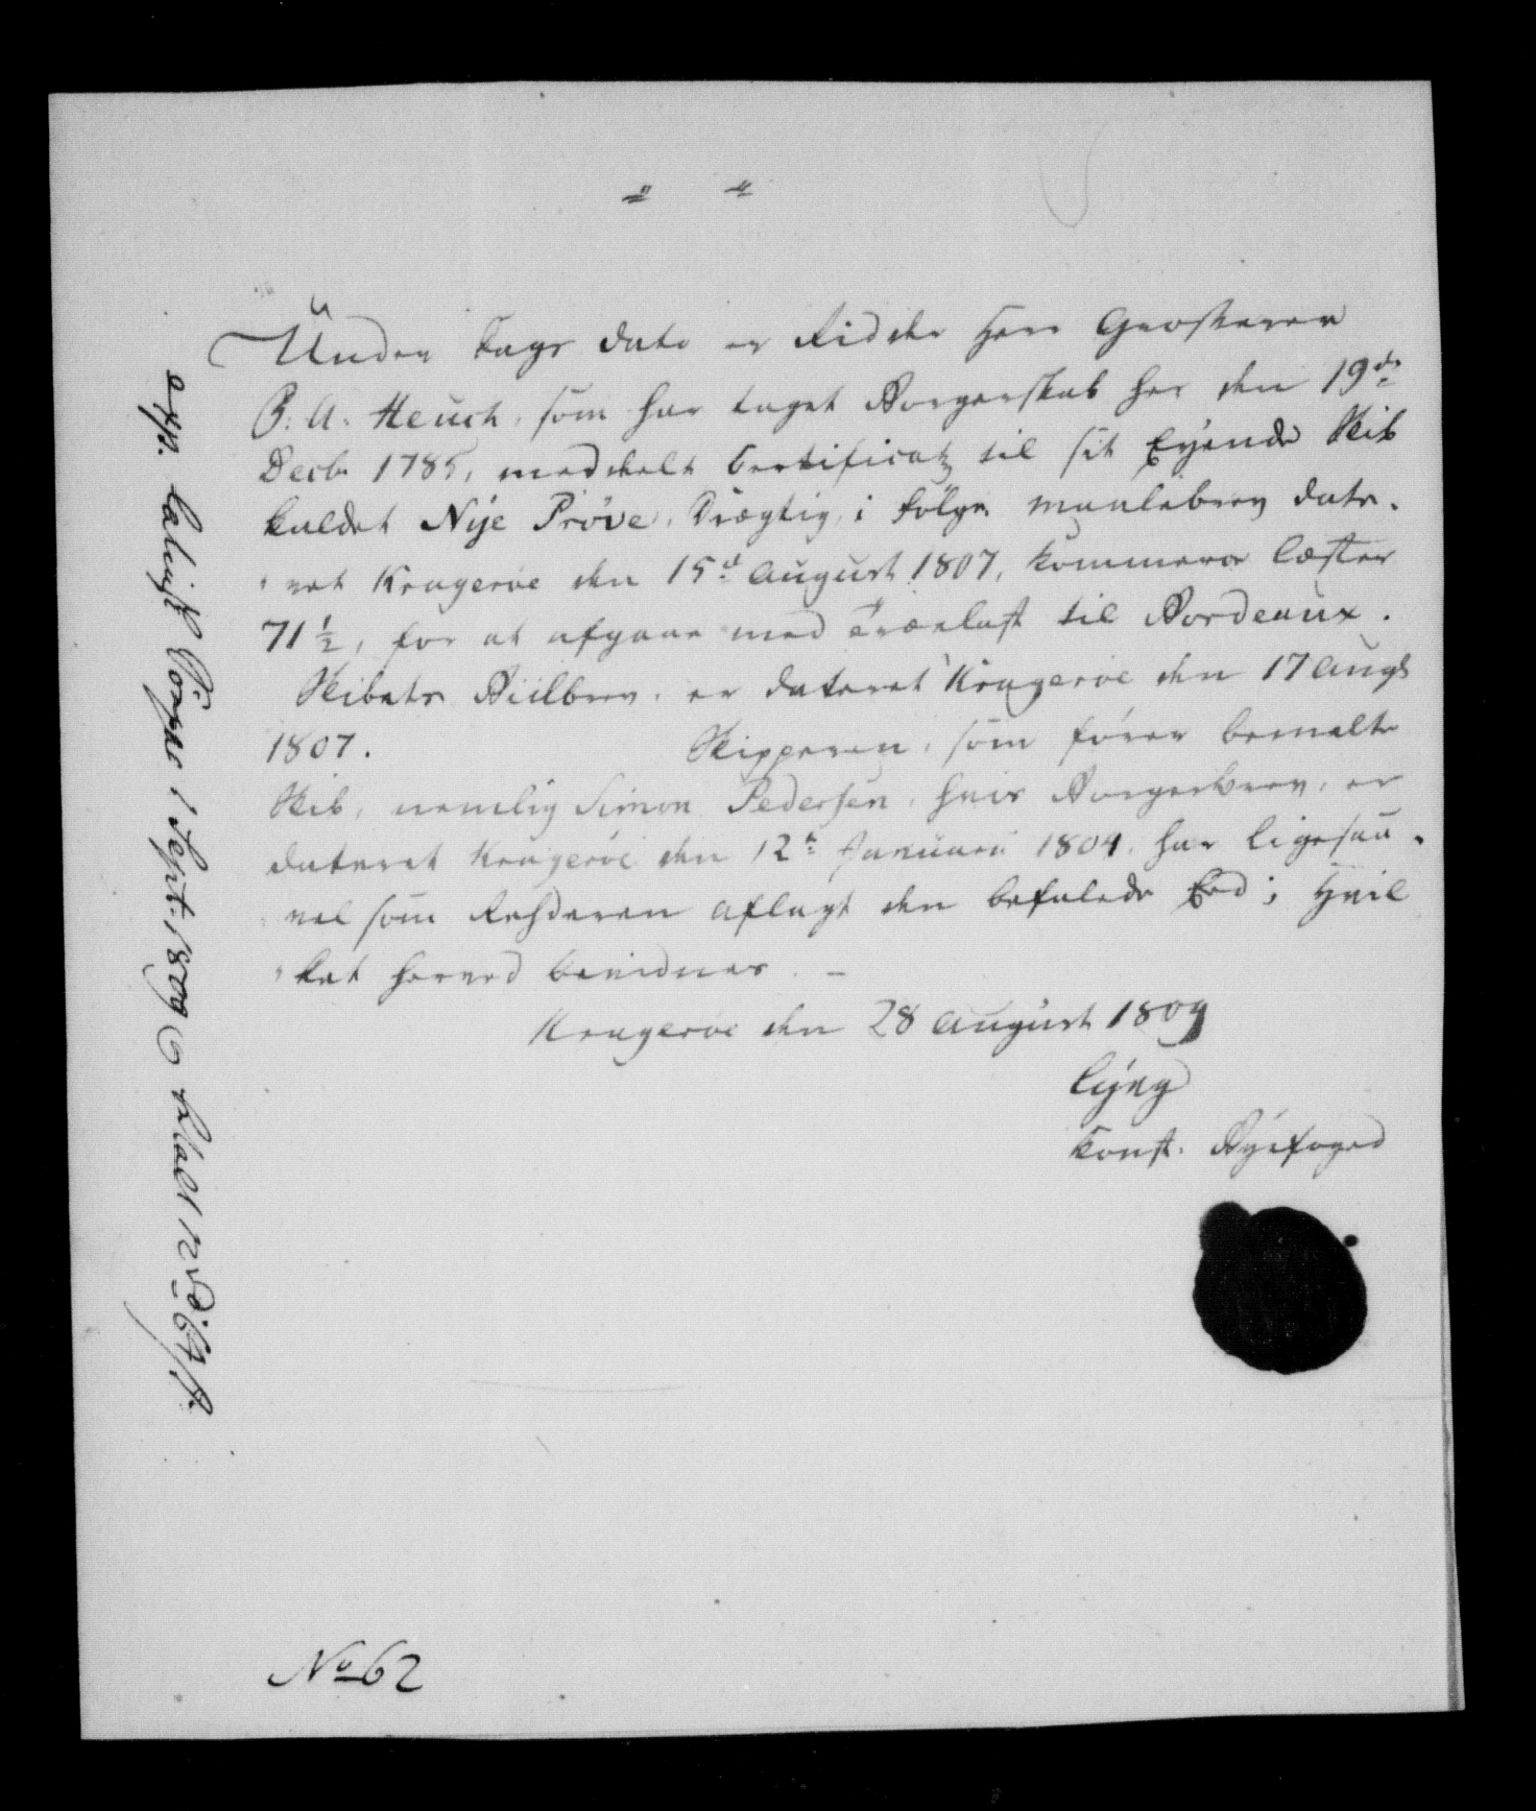 Under Dags Dato er Ridder Herr Grosserer
P: A. Heuch, som har taget Borgerskab her den 19de
Decb. 1785, meddeelt Certificat til sit Eyende Skib
kaldet Nye Prøve, Drægtig, i følge Maalebrev date-
ret Krageröe den 15d August 1807, Kommerce Læster
71 1/2, for at afgaae med Trælast til Bordeaux.
Skibets Biilbrev, er dateret Krageröe den 17 Augt
1807. Skipperen, som fører bemelte
Skib, nemlig Simon Pedersen, hvis Borgerbrev, er
dateret Krageröe den 12te Januari 1804, har ligesaa-
vel som Rehderen aflagt den befalede Eed; Hvil
ket herved bevidnes. -
Krageröe den 28 August 1809
Lyng
Const. Byefoged
No 62
exp. 1 Sept. 1809